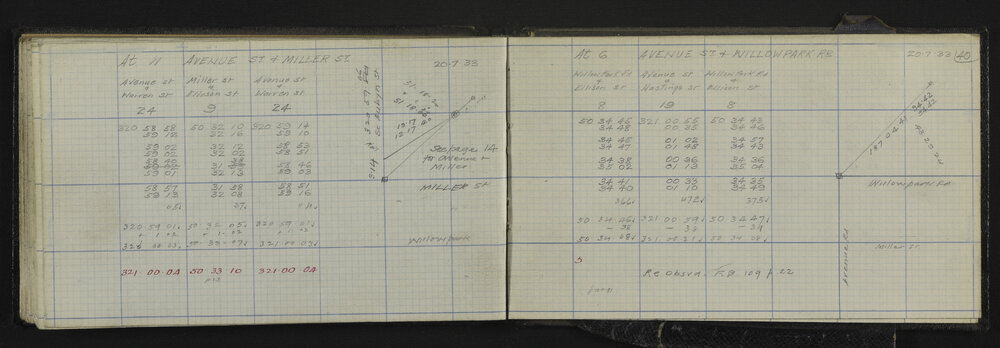 At 11 AVENUE ST & MILLER ST. 20·7·33
Avenue St Miller St Avenue St
& & &
Warren St Ellison St Warren St
24 9 24
320 58 58 50 32 10 320 59 14
59 12 32 16 59 10
59 02 32 12 58 53
59 02 32 02 58 51
58 46
59 01 32 13 59 03
58 57 31 58 58 51
59 13 32 08 59 16
320 59 01 50 32 05 320 59 01
+ 1·02 + 1·02 + 1·02
320 00 03 50 33 07 321 00 03
321·00·04 50 33 10 321·00·04
See page 14
for Avenue &
Miller
MILLER ST
Willowpark
At 6 AVENUE ST & WILLOWPARK RD 20·7·33 40
Willow Park Rd Avenue St Willow Park Rd
& & &
Ellison St Hastings St Ellison St
8 19 8
50 34 45 321 00 55 50 34 43
34 48 00 35 34 46
34 45 01 02 34 57
34 47 01 48 34 43
34 38 00 36 34 36
35 02 01 13 35 04
34 41 00 33 34 35
34 40 01 10 34 49
366 472 373
50 34 46 321 00 59 50 34 47
- 38 - 38 - 39
50 34 08 321 00 21 50 34 08
5
Re Obsvd. F.B 109 p 22
Willowpark Rd
Miller St
Avenue Rd